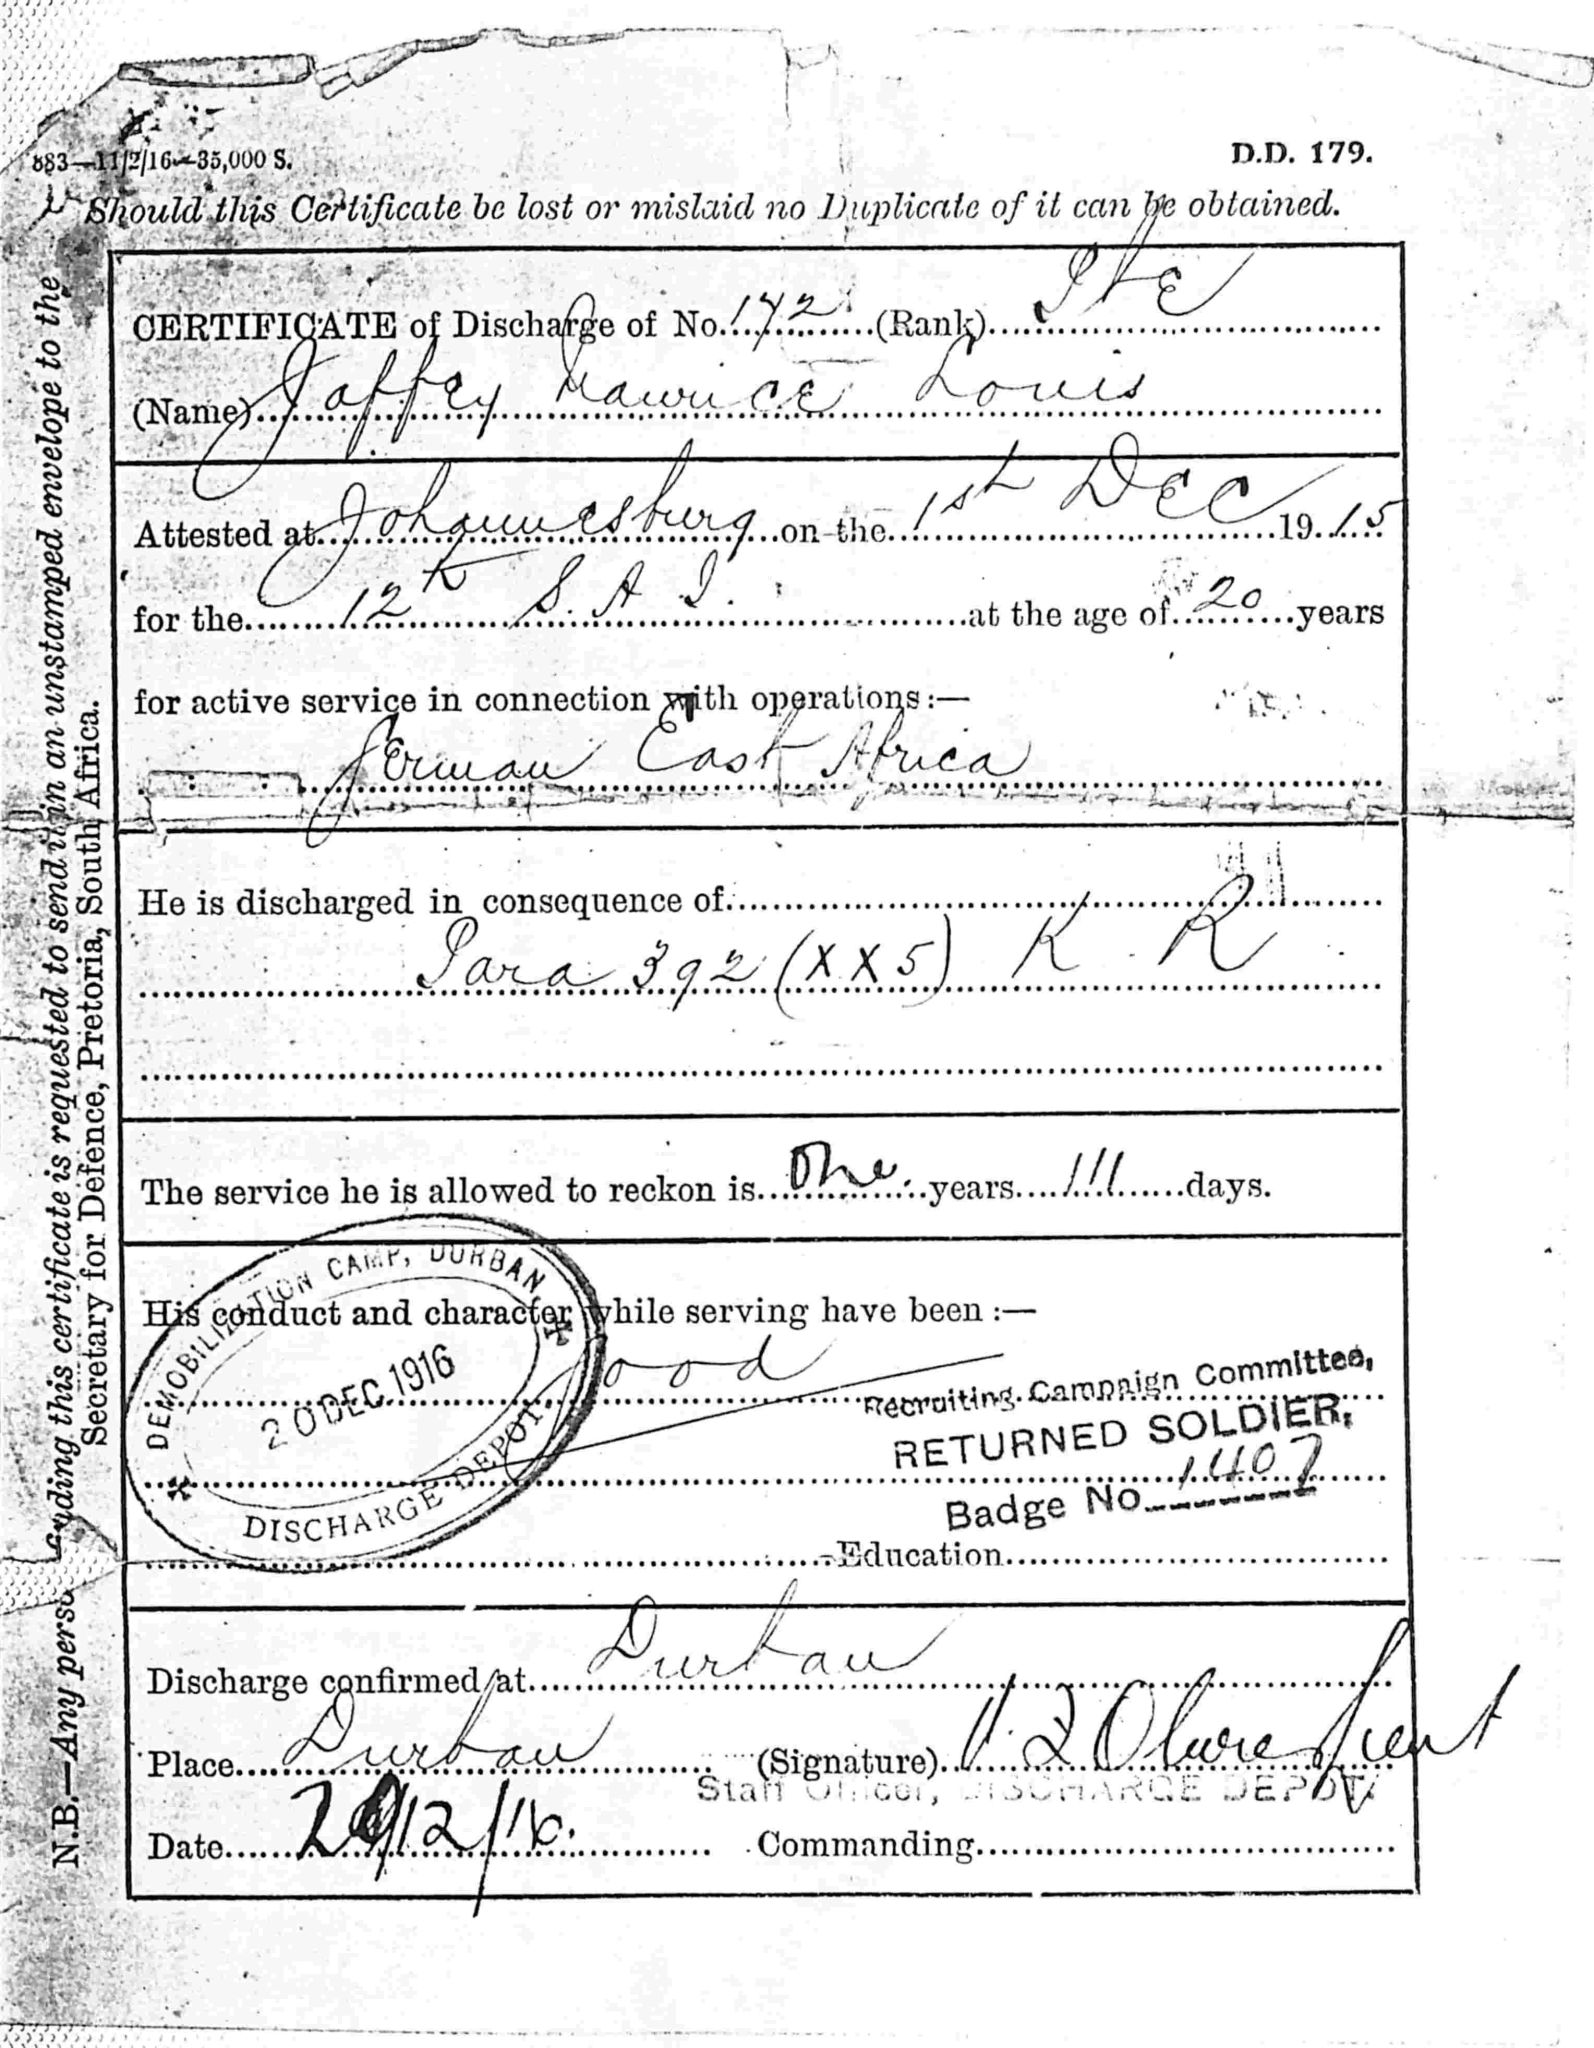 883—11/2/16—35,000 S.
D.D. 179.
Should this Certificate be lost or mislaid no Duplicate of it can be obtained.
CERTIFICATE of Discharge of No. 172 (Rank) Pte
(Name) Jaffey Maurice Louis
Attested at Johannesburg on the 1st DEC 1915
for the 12th S. A. I. at the age of 20 years
for active service in connection with operations:—
German East Africa
He is discharged in consequence of
Para 392 (XX5) K R
The service he is allowed to reckon is One years 111 days.
His conduct and character while serving have been :—
Good
DEMOBILIZATION CAMP, DURBAN
20 DEC 1916
DISCHARGE DEPOT
Recruiting Campaign Committee,
RETURNED SOLDIER,
Badge No. 1407
Education
Discharge confirmed at Durban
Place Durban (Signature) Lieut
Staff Officer, DISCHARGE DEPOT
Date 20/12/16. Commanding
N.B.—Any person finding this certificate is requested to send it in an unstamped envelope to the
Secretary for Defence, Pretoria, South Africa.